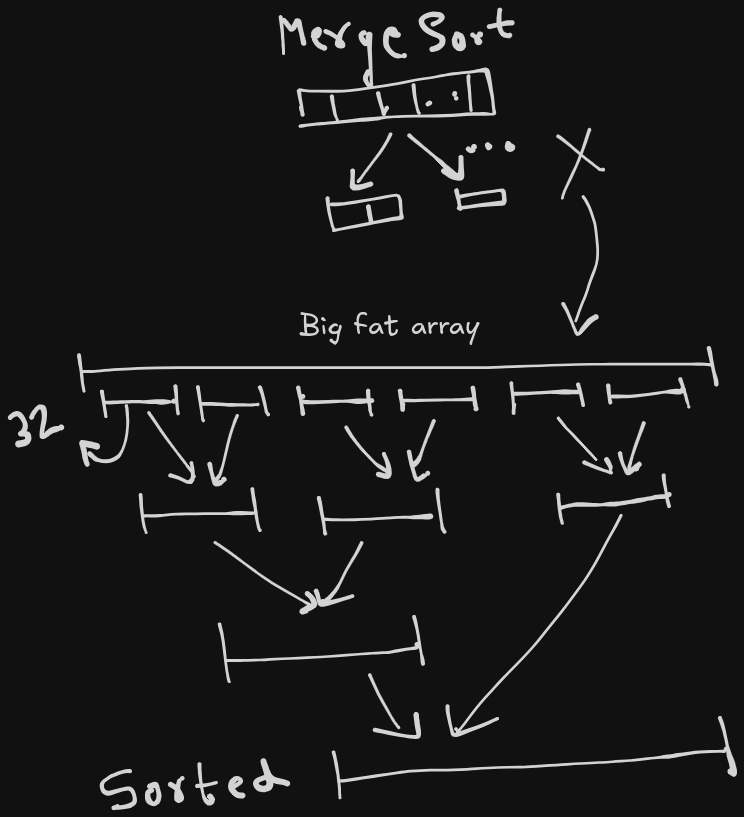 Merge Sort
...
Big fat array
32
Sorted